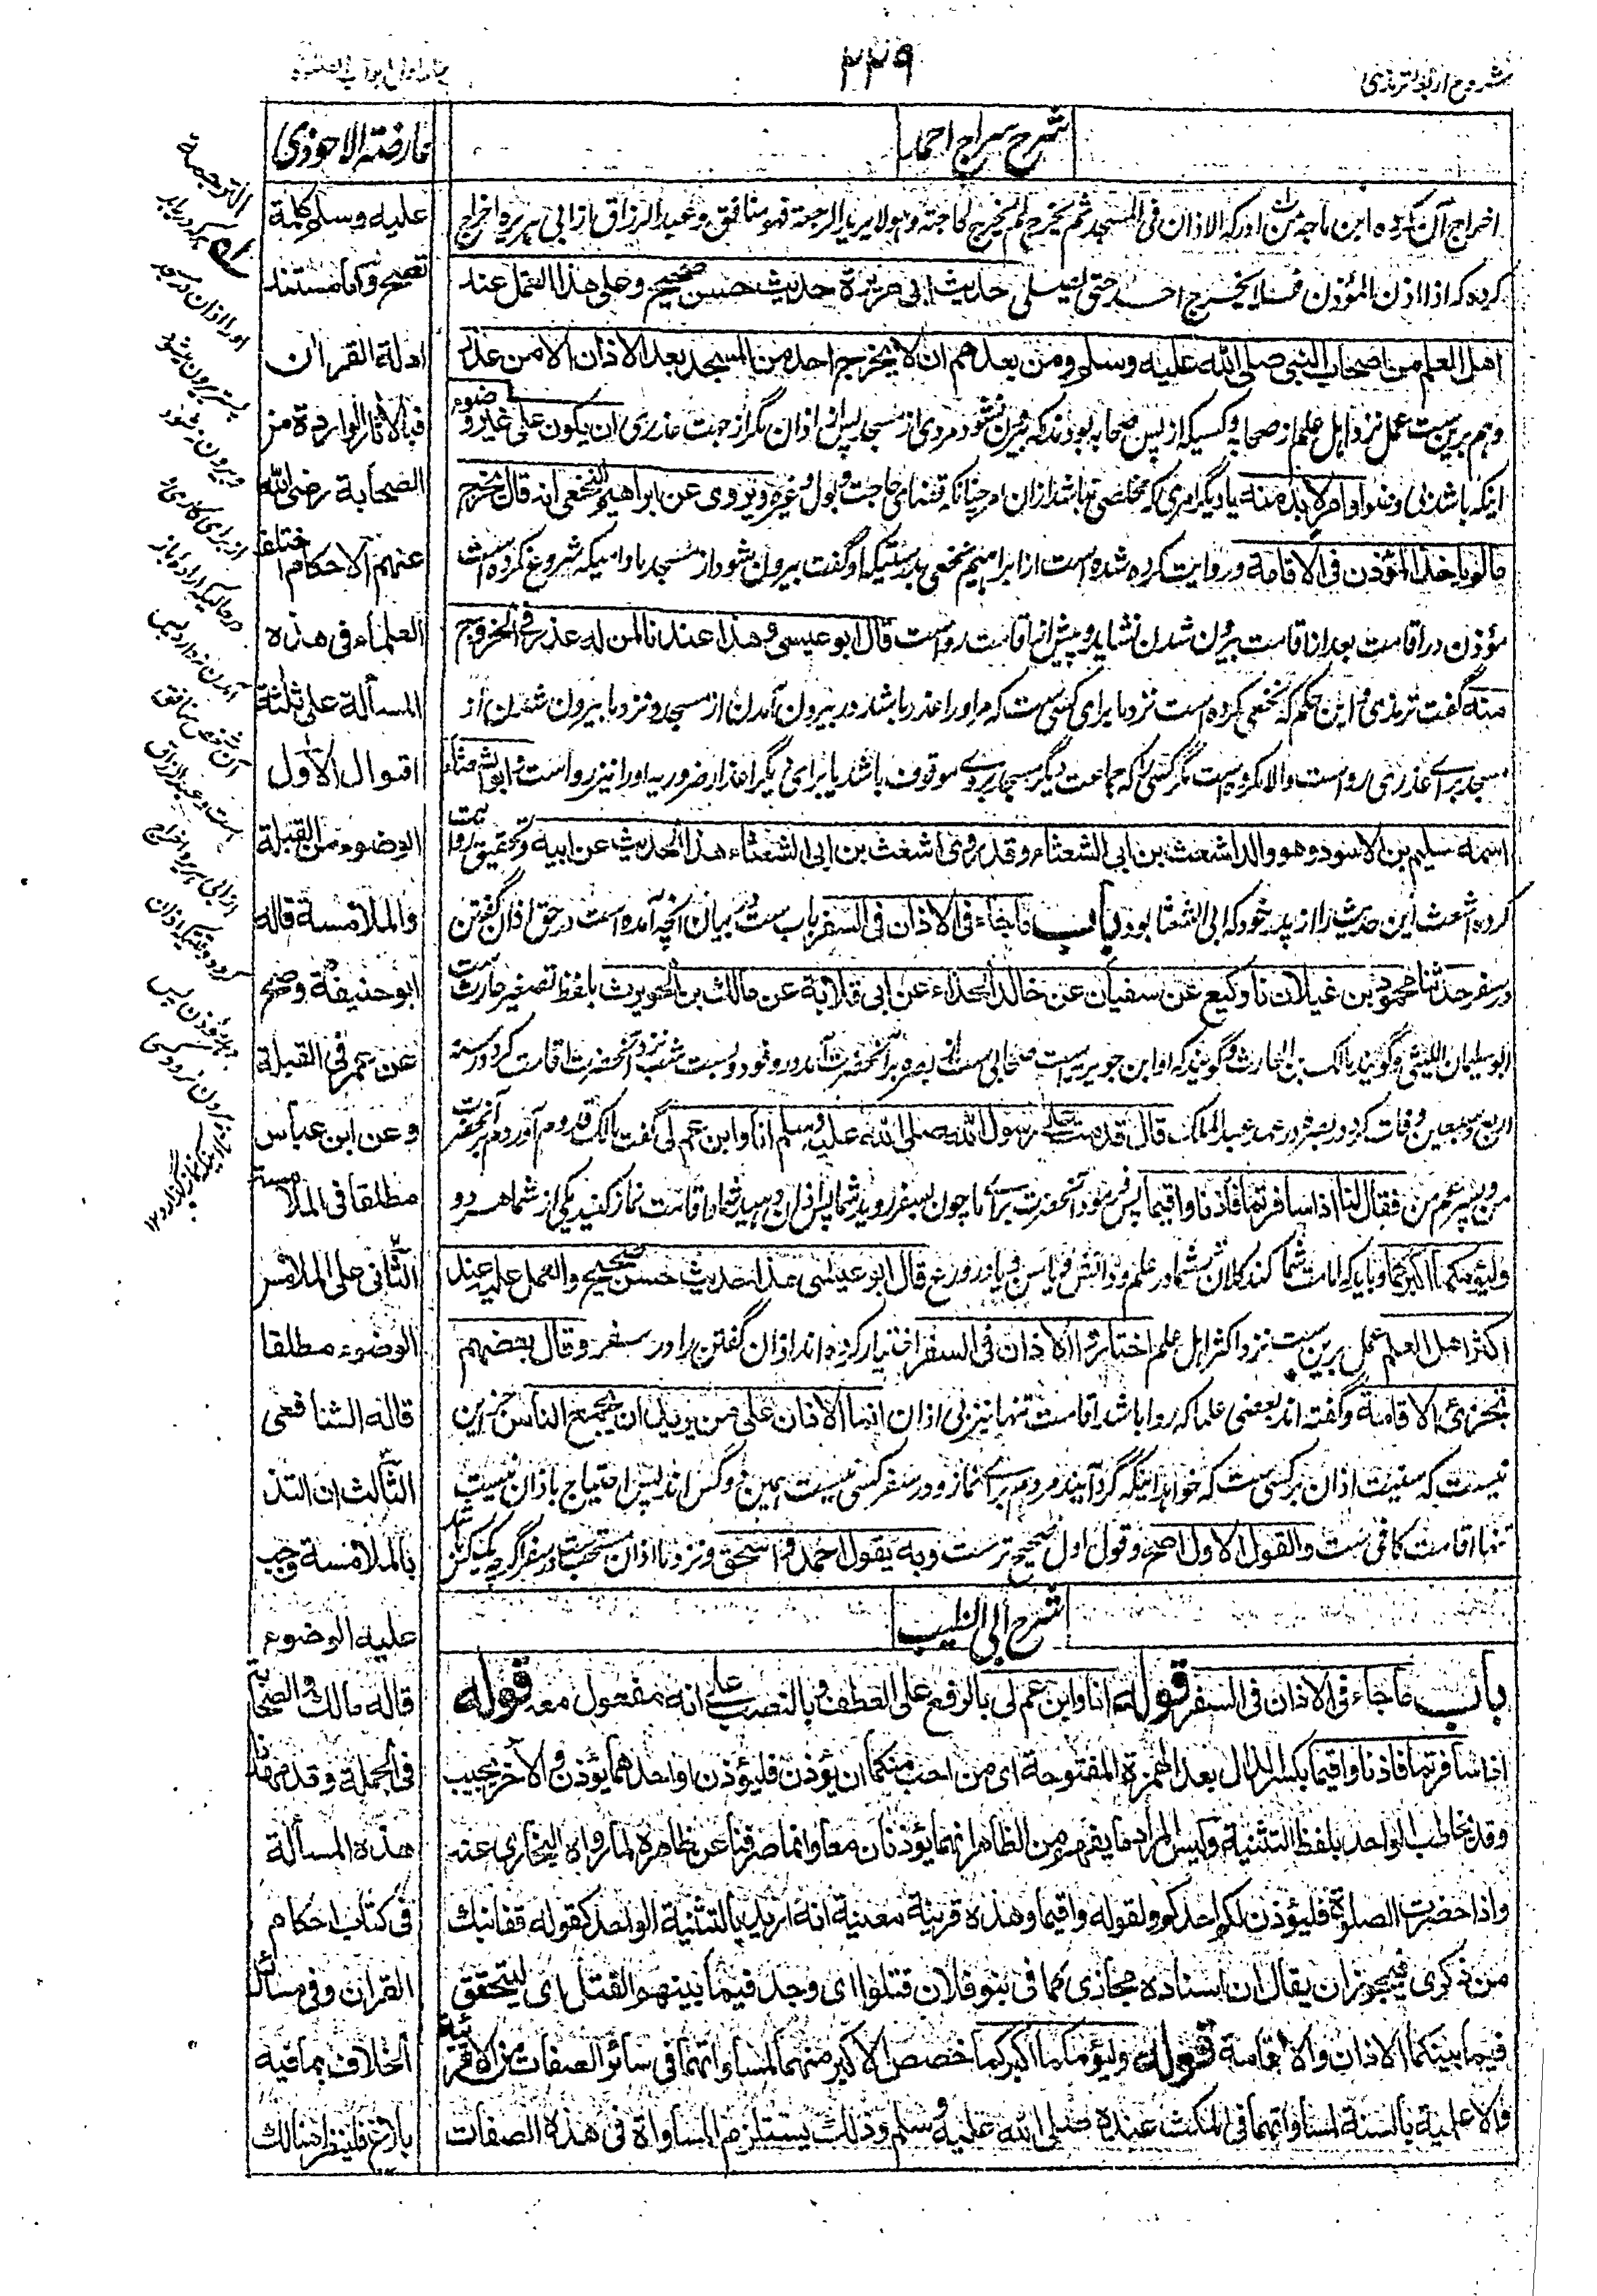 شروح اربعہ ترمذی
۲۲۹
شرح سراج احمد
اخراج آن کرده ابن ماجه من ادرکه الاذان فی المسجد ثم یخرج لم یخرج لحاجته وهو لا یرید الرجعة فهو منافق و عبدالرزاق باز ابی هریره اخراج
کرده که اذا اذن المؤذن فلا یخرج احد حتی یصلی حدیث ابی هریرة حدیث حسن صحیح وعلی هذا العمل عند
اهل العلم من اصحاب النبی صلی الله علیه وسلم ومن بعدهم ان لا یخرج احد من المسجد بعد الاذان الا من عذر
وهم برین ست عمل نزد اهل علم از صحابه و کسیکه از پس صحابه بودند که بیرون نشود مردی از مسجد پس از اذان مگر از جهت عذری ان یکون علی غیر وضوء
اینکه باشد بی وضو او امر لا بد منه یا دیگر امری که مخلصی نباشد ازان امر چنانکه قضای حاجت و بول و غیره ویروی عن ابراهیم النخعی انه قال یخرج
مالم یاخذ المؤذن فی الاقامة و روایت کرده شده است از ابراهیم نخعی بدرستیکه او گفت بیرون شود از مسجد مادامیکه شروع کرده است
مؤذن در اقامت بعد از اقامت بیرون شدن نشاید و پیش از اقامت رواست قال ابوعیسی وهذا عندنا لمن له عذر فی الخروج
منه گفت ترمذی و این حکم که نخعی کرده است نزد ما برای کسی ست که مر او را عذر باشد در بیرون آمدن از مسجد و نزد ما بیرون شدن از
مسجد برای عذری رواست والا مکروه است مگر کسی را که جماعت دیگر مسجد بر وی موقوف باشد یا برای دیگر اعذار ضروریه او را نیز رواست وابوالشعثاء
اسمه سلیم بن الاسود وهو والد اشعث بن ابی الشعثاء وقد روی اشعث بن ابی الشعثاء هذا الحدیث عن ابیه وتحقیق روایت
کرده اشعث این حدیث را از پدر خود که ابی الشعثا بود باب ماجاء فی الاذان فی السفر باب ست در بیان آنچه آمده است در حق اذان گفتن
در سفر حدثنا محمود بن غیلان نا وکیع عن سفیان عن خالد الحذاء عن ابی قلابة عن مالک بن الحویرث بلفظ تصغیر حارث ست
ابو سلیمان اللیثی و گویند مالک بن الحارث و گویند که او ابن حویرثه است صحابی ست از بصره بر آنحضرت آمد در وفود و بست شب نزد آنحضرت اقامت کرد در سنه
اربع وسبعین وفات کرد در بصره در عهد عبدالملک قال قدمت علی رسول الله صلی الله علیه وسلم انا وابن عم لی گفت مالک قدوم آوردم بر آنحضرت
من و پسر عم من فقال لنا اذا سافرتما فاذنا واقیما پس فرمود آنحضرت برای ما چون بسفر روید شما پس اذان دهید شما و اقامت نماز کنید یکی از شما هر دو
ولیؤمکما اکبرکما و باید که امامت شما کند کلان شما در علم و دانش و یا سن و یا در ورع قال ابوعیسی هذا حدیث حسن صحیح والعمل علیه عند
اکثر اهل العلم عمل برین ست نزد اکثر اهل علم اختاروا الاذان فی السفر اختیار کرده اند اذان گفتن را در سفر وقال بعضهم
تجزئ الاقامة و گفته اند بعضی علما که روا باشد اقامت تنها نیز بی اذان انما الاذان علی من یرید ان یجمع الناس جز این
نیست که سنیت اذان بر کسی ست که خواهد اینکه گرد آیند مردم برای نماز و در سفر کسی نیست همین دو کس اند پس احتیاج باذان نیست
تنها اقامت کافی ست والقول الاول اصح و قول اول صحیح تر ست وبه یقول احمد واسحق و نزد ما اذان مستحب ست در سفر اگر چه یک کس باشد
شرح ابی الطیب
باب ماجاء فی الاذان فی السفر قوله انا وابن عم لی بالرفع علی العطف وبالنصب علی انه مفعول معه قوله
اذا سافرتما فاذنا واقیما بکسر الذال بعد الهمزة المفتوحة ای من احب منکما ان یؤذن فلیؤذن او احدهما یؤذن والآخر یجیب
وقد یخاطب الواحد بلفظ التثنیة ولیس المراد ما یفهم من الظاهر انهما یؤذنان معا وانما صرفنا عن ظاهره لما رواه البخاری عنه
واذا حضرت الصلوة فلیؤذن لکم احدکم ولقوله واقیما وهذه قرینة معینة انه ارید بالتثنیة الواحد کقوله قفا نبک
من ذکری فیجوز ان یقال ان اسناده مجازی کما فی بنو فلان قتلوا ای وجد فیما بینهم القتل ای لیتحقق
فیما بینکما الاذان والاقامة قوله ولیؤمکما اکبرکما خصص الاکبر منهما لمساواتهما فی سائر الصفات من الاقرئیة
والاعلمیة بالسنة لمساواتهما فی المکث عنده صلی الله علیه وسلم وذلک یستلزم المساواة فی هذه الصفات
عارضة الاحوذی
علیه وسلم کلمة
تصح واما مستند
ادلة القرآن
فبالآثار الواردة من
الصحابة رضی الله
عنهم الاحکام اختلف
العلماء فی هذه
المسألة علی ثلثة
اقوال الاول
الوضوء من القبلة
والملامسة قاله
ابو حنیفة وصح
عن عمر فی القبلة
وعن ابن عباس
مطلقا فی الملامسة
الثانی علی الملامس
الوضوء مطلقا
قاله الشافعی
الثالث ان التذ
بالملامسة وجب
علیه الوضوء
قاله مالک والصحابة
فی الجملة وقد مهدنا
هذه المسألة
فی کتاب احکام
القرآن وفی مسائل
الخلاف بما فیه
بلاغ فلینظر هنالک
الترجمة
هر که دریابد
او را اذان در مسجد
پستر بیرون شود
و بیرون نه شود
از برای کاری و
در حالیکه اراده باز
آمدن ندارد پس
آن شخص منافق
ست و عبدالرزاق
از ابی هریره اخراج
کرد وقتیکه اذان
دهد مؤذن پس
بیرون نرود کسی
تا اینکه نماز گذارد ۱۲